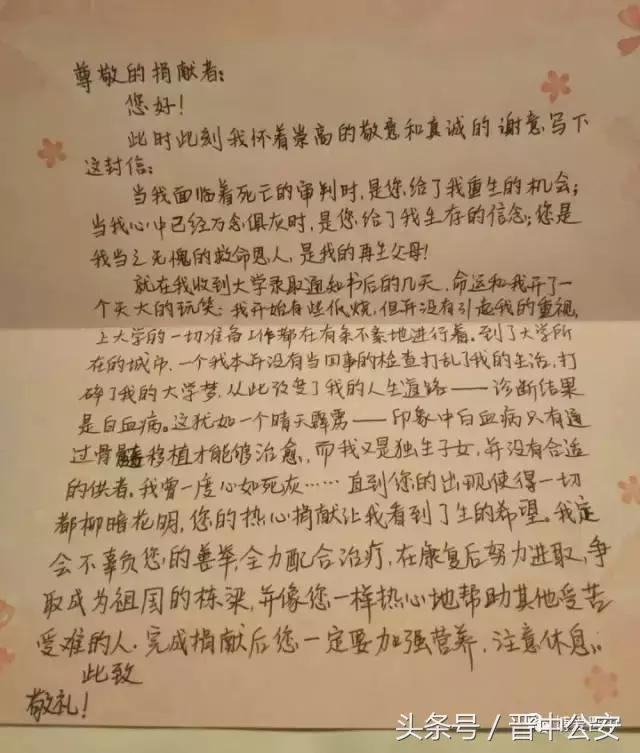 尊敬的捐献者：
您好！
此时此刻我怀着崇高的敬意和真诚的谢意写下
这封信：
当我面临着死亡的审判时，是您给了我重生的机会；
当我心中已经万念俱灰时，是您给了我生存的信念；您是
我当之无愧的救命恩人，是我的再生父母！
就在我收到大学录取通知书后的几天，命运和我开了
一个天大的玩笑：我开始有些低烧，但并没有引起我的重视，
上大学的一切准备工作都在有条不紊地进行着。到了大学所
在的城市，一个我本并没有当回事的检查打乱了我的生活，打
碎了我的大学梦，从此改变了我的人生道路——诊断结果
是白血病。这犹如一个晴天霹雳——印象中白血病只有通
过骨髓移植才能够治愈，而我又是独生子女，并没有合适
的供者。我曾一度心如死灰……直到您的出现使得一切
都柳暗花明，您的热心捐献让我看到了生的希望。我定
会不辜负您的善举，全力配合治疗，在康复后努力进取，争
取成为祖国的栋梁，并像您一样热心地帮助其他受苦
受难的人。完成捐献后您一定要加强营养，注意休息。
此致
敬礼！
头条号／晋中公安